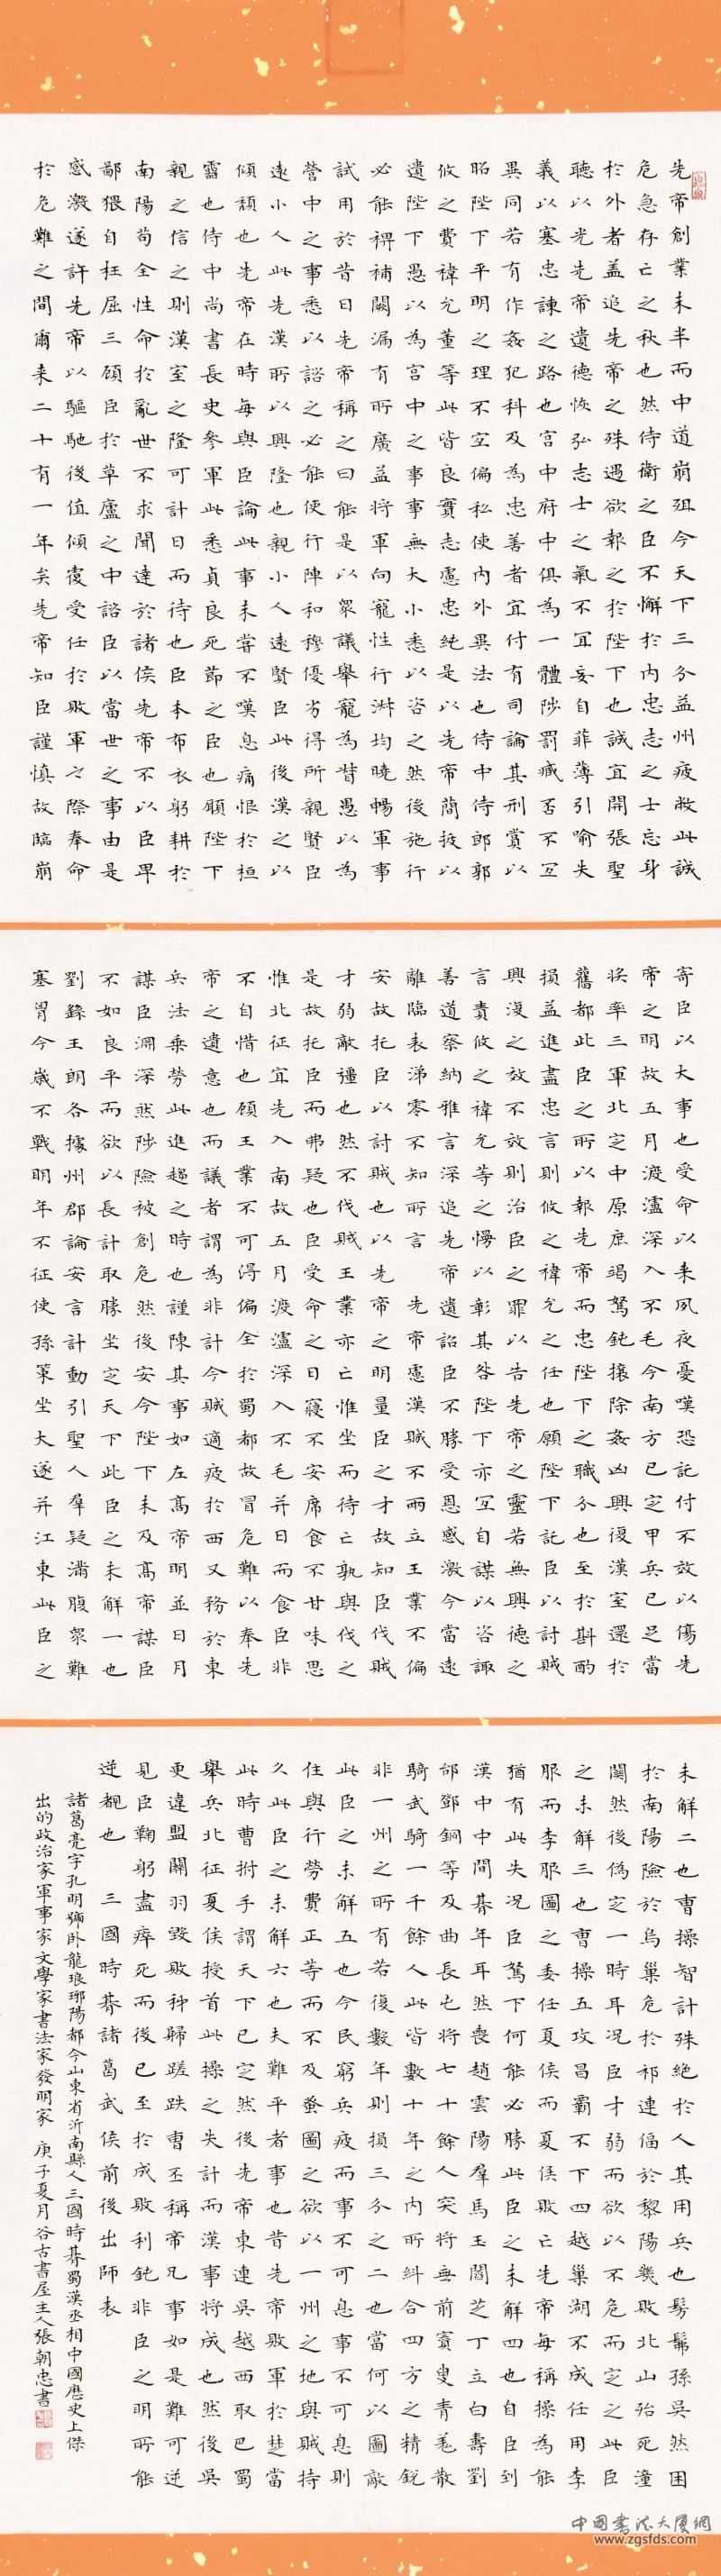 先帝創業未半而中道崩殂今天下三分益州疲敝此誠
危急存亡之秋也然侍衛之臣不懈於內忠志之士忘身
於外者蓋追先帝之殊遇欲報之於陛下也誠宜開張聖
聽以光先帝遺德恢弘志士之氣不宜妄自菲薄引喻失
義以塞忠諫之路也宮中府中俱為一體陟罰臧否不宜
異同若有作姦犯科及為忠善者宜付有司論其刑賞以
昭陛下平明之理不宜偏私使內外異法也侍中侍郎郭
攸之費禕允董等此皆良實志慮忠純是以先帝簡拔以
遺陛下愚以為宮中之事事無大小悉以咨之然後施行
必能裨補闕漏有所廣益將軍向寵性行淑均曉暢軍事
試用於昔日先帝稱之曰能是以眾議舉寵為督愚以為
營中之事悉以諮之必能使行陣和穆優劣得所親賢臣
遠小人此先漢所以興隆也親小人遠賢臣此後漢之以
傾頹也先帝在時每與臣論此事未嘗不嘆息痛恨於桓
靈也侍中尚書長史參軍此悉貞良死節之臣也願陛下
親之信之則漢室之隆可計日而待也臣本布衣躬耕於
南陽苟全性命於亂世不求聞達於諸侯先帝不以臣卑
鄙猥自枉屈三顧臣於草廬之中諮臣以當世之事由是
感激遂許先帝以驅馳後值傾覆受任於敗軍之際奉命
於危難之間爾來二十有一年矣先帝知臣謹慎故臨崩
寄臣以大事也受命以來夙夜憂嘆恐託付不效以傷先
帝之明故五月渡瀘深入不毛今南方已定甲兵已足當
獎率三軍北定中原庶竭駑鈍攘除姦凶興復漢室還於
舊都此臣之所以報先帝而忠陛下之職分也至於斟酌
損益進盡忠言則攸之禕允之任也願陛下託臣以討賊
興復之效不效則治臣之罪以告先帝之靈若無興德之
言責攸之禕允等之慢以彰其咎陛下亦宜自謀以咨諏
善道察納雅言深追先帝遺詔臣不勝受恩感激今當遠
離臨表涕零不知所言 先帝慮漢賊不兩立王業不偏
安故托臣以討賊也以先帝之明量臣之才故知臣伐賊
才弱敵彊也然不伐賊王業亦亡惟坐而待亡孰與伐之
是故托臣而弗疑也臣受命之日寢不安席食不甘味思
惟北征宜先入南故五月渡瀘深入不毛并日而食臣非
不自惜也顧王業不可得偏全於蜀都故冒危難以奉先
帝之遺意也而議者謂為非計今賊適疲於西又務於東
兵法乘勞此進趨之時也謹陳其事如左高帝明並日月
謀臣淵深然陟險被創危然後安今陛下未及高帝謀臣
不如良平而欲以長計取勝坐定天下此臣之未解一也
劉繇王朗各據州郡論安言計動引聖人群疑滿腹眾難
塞胸今歲不戰明年不征使孫策坐大遂并江東此臣之
未解二也曹操智計殊絕於人其用兵也髣髴孫吳然困
於南陽險於烏巢危於祁連偪於黎陽幾敗北山殆死潼
關然後偽定一時耳況臣才弱而欲以不危而定之此臣
之未解三也曹操五攻昌霸不下四越巢湖不成任用李
服而李服圖之委任夏侯而夏侯敗亡先帝每稱操為能
猶有此失況臣駑下何能必勝此臣之未解四也自臣到
漢中中間朞年耳然喪趙雲陽群馬玉閻芝丁立白壽劉
郃鄧銅等及曲長屯將七十餘人突將無前賨叟青羌散
騎武騎一千餘人此皆數十年之內所糾合四方之精銳
非一州之所有若復數年則損三分之二也當何以圖敵
此臣之未解五也今民窮兵疲而事不可息事不可息則
住與行勞費正等而不及蚤圖之欲以一州之地與賊持
久此臣之未解六也夫難平者事也昔先帝敗軍於楚當
此時曹拊手謂天下已定然後先帝東連吳越西取巴蜀
舉兵北征夏侯授首此操之失計而漢事將成也然後吳
更違盟關羽毀敗秭歸蹉跌曹丕稱帝凡事如是難可逆
見臣鞠躬盡瘁死而後已至於成敗利鈍非臣之明所能
逆覩也 三國時朞諸葛武侯前後出師表
諸葛亮字孔明號臥龍琅琊陽都今山東省沂南縣人三國時朞蜀漢丞相中國歷史上傑
出的政治家軍事家文學家書法家發明家 庚子夏月谷古書屋主人張朝忠書
中國書法大廈網
www.zgsfds.com